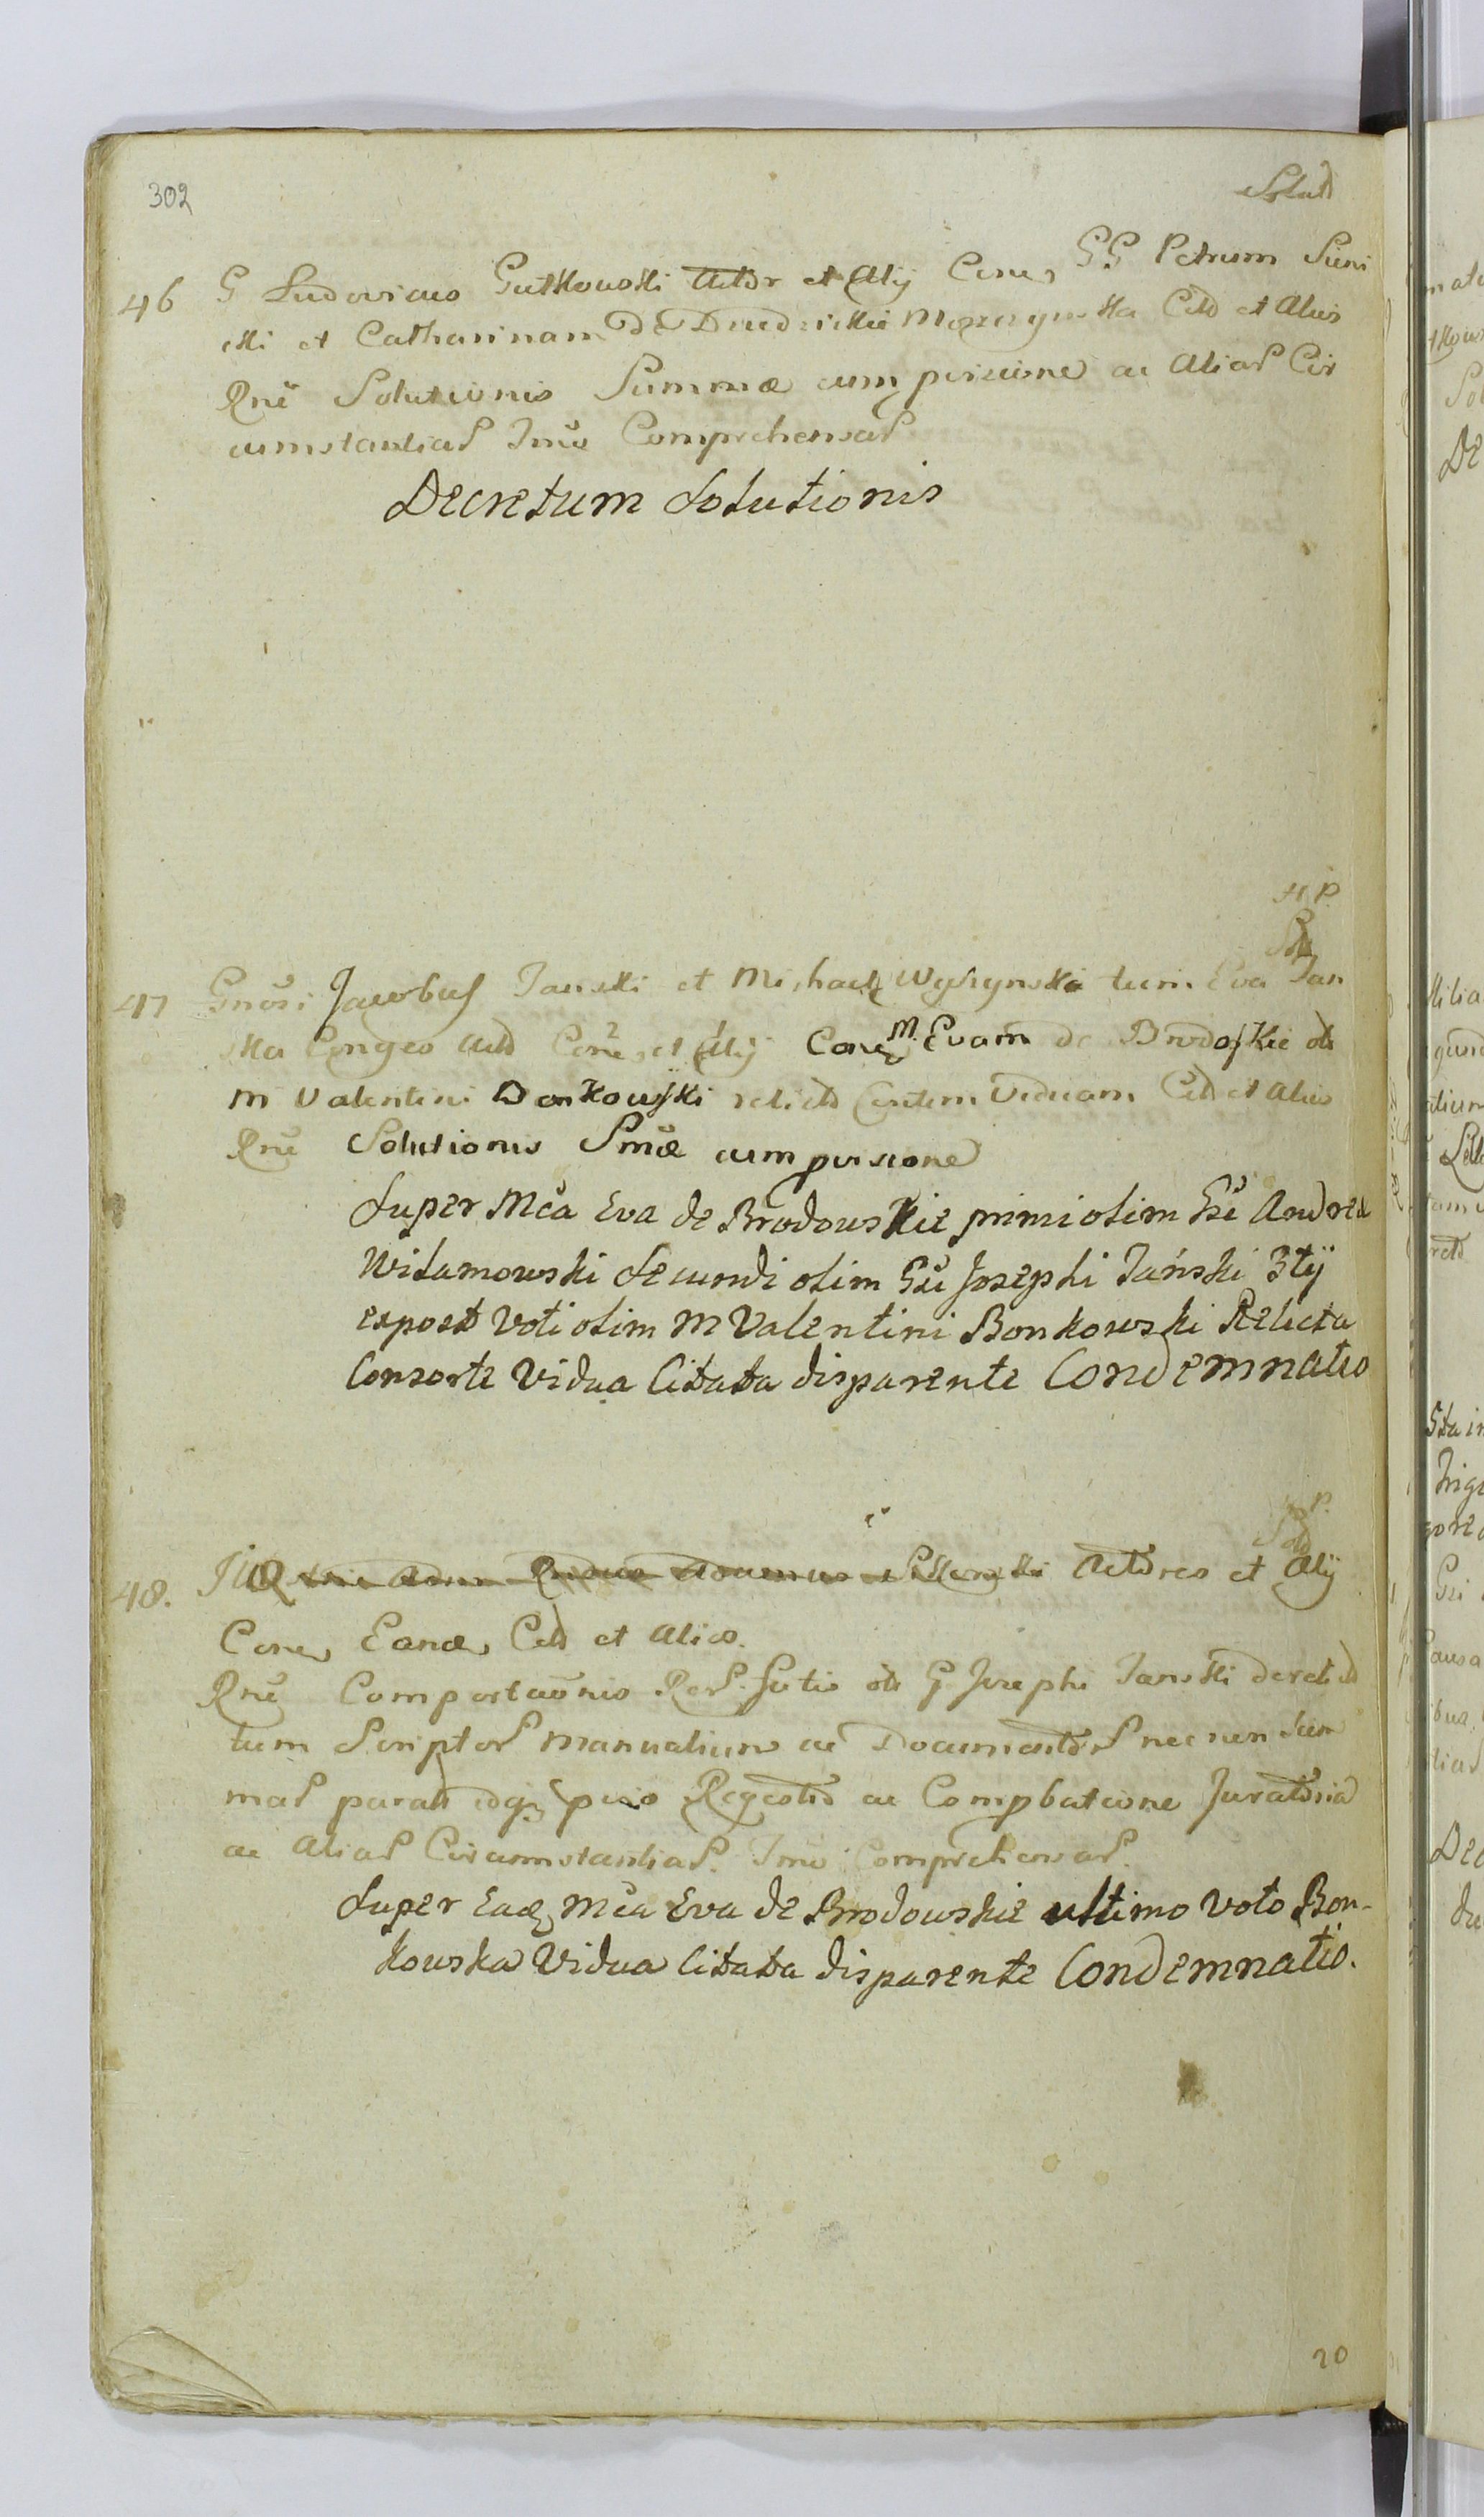 302
Solut
46 G Ludovicus Gutkowski Actor et Alij Cones GG Petrum Sieni
cki et Catharinam De Mszczynska Citd et Alios
Rne Solutionis Summæ cum provisione ac Aliar Cir
cumstantiar Imo Comprehensar
Decretum Solutionis
H. P.
47 Gnosi Jacobus Janski et Michael Wyszynski tum Eva Jan
ska Conges Actd Cone et Alij Cone M. Evam de Brodoskie ol
M Valentini Bonkowski relictd Consortem Viduam Citd et Alios
Rne Solutionis Smæ cum provisione
Super Mca Eva de Brodowskie primi olim Gsi Andrea
Widamowski secundi olim Gsi Josephi Jański 3tij
expost Voti olim M Valentini Bonkowski Relicta
Consorte Vidua Citatta disparente Condemnatio
P.
48. Actores et Alij
Cone Eand Citd et Alios.
Rne Comportaonis Rer. ol G Josephi Janski derelictd
tum Scriptor Manualium ac Documentor nec non Sum
mar parat idq Regestd ac Compbatione Juratoria
ac Aliar Circumstantiar. Imo Comprehensar.
Super Ead Mca Eva de Brodowskie ultimo Voto Bon-
kowska Vidua Citatta disparente Condemnatio.
20